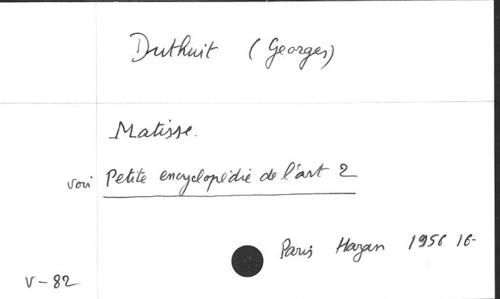 Duthuit (Georges)
Matisse.
voir Petite encyclopédie de l'art 2
Paris Hazan 1956 16-
V-82